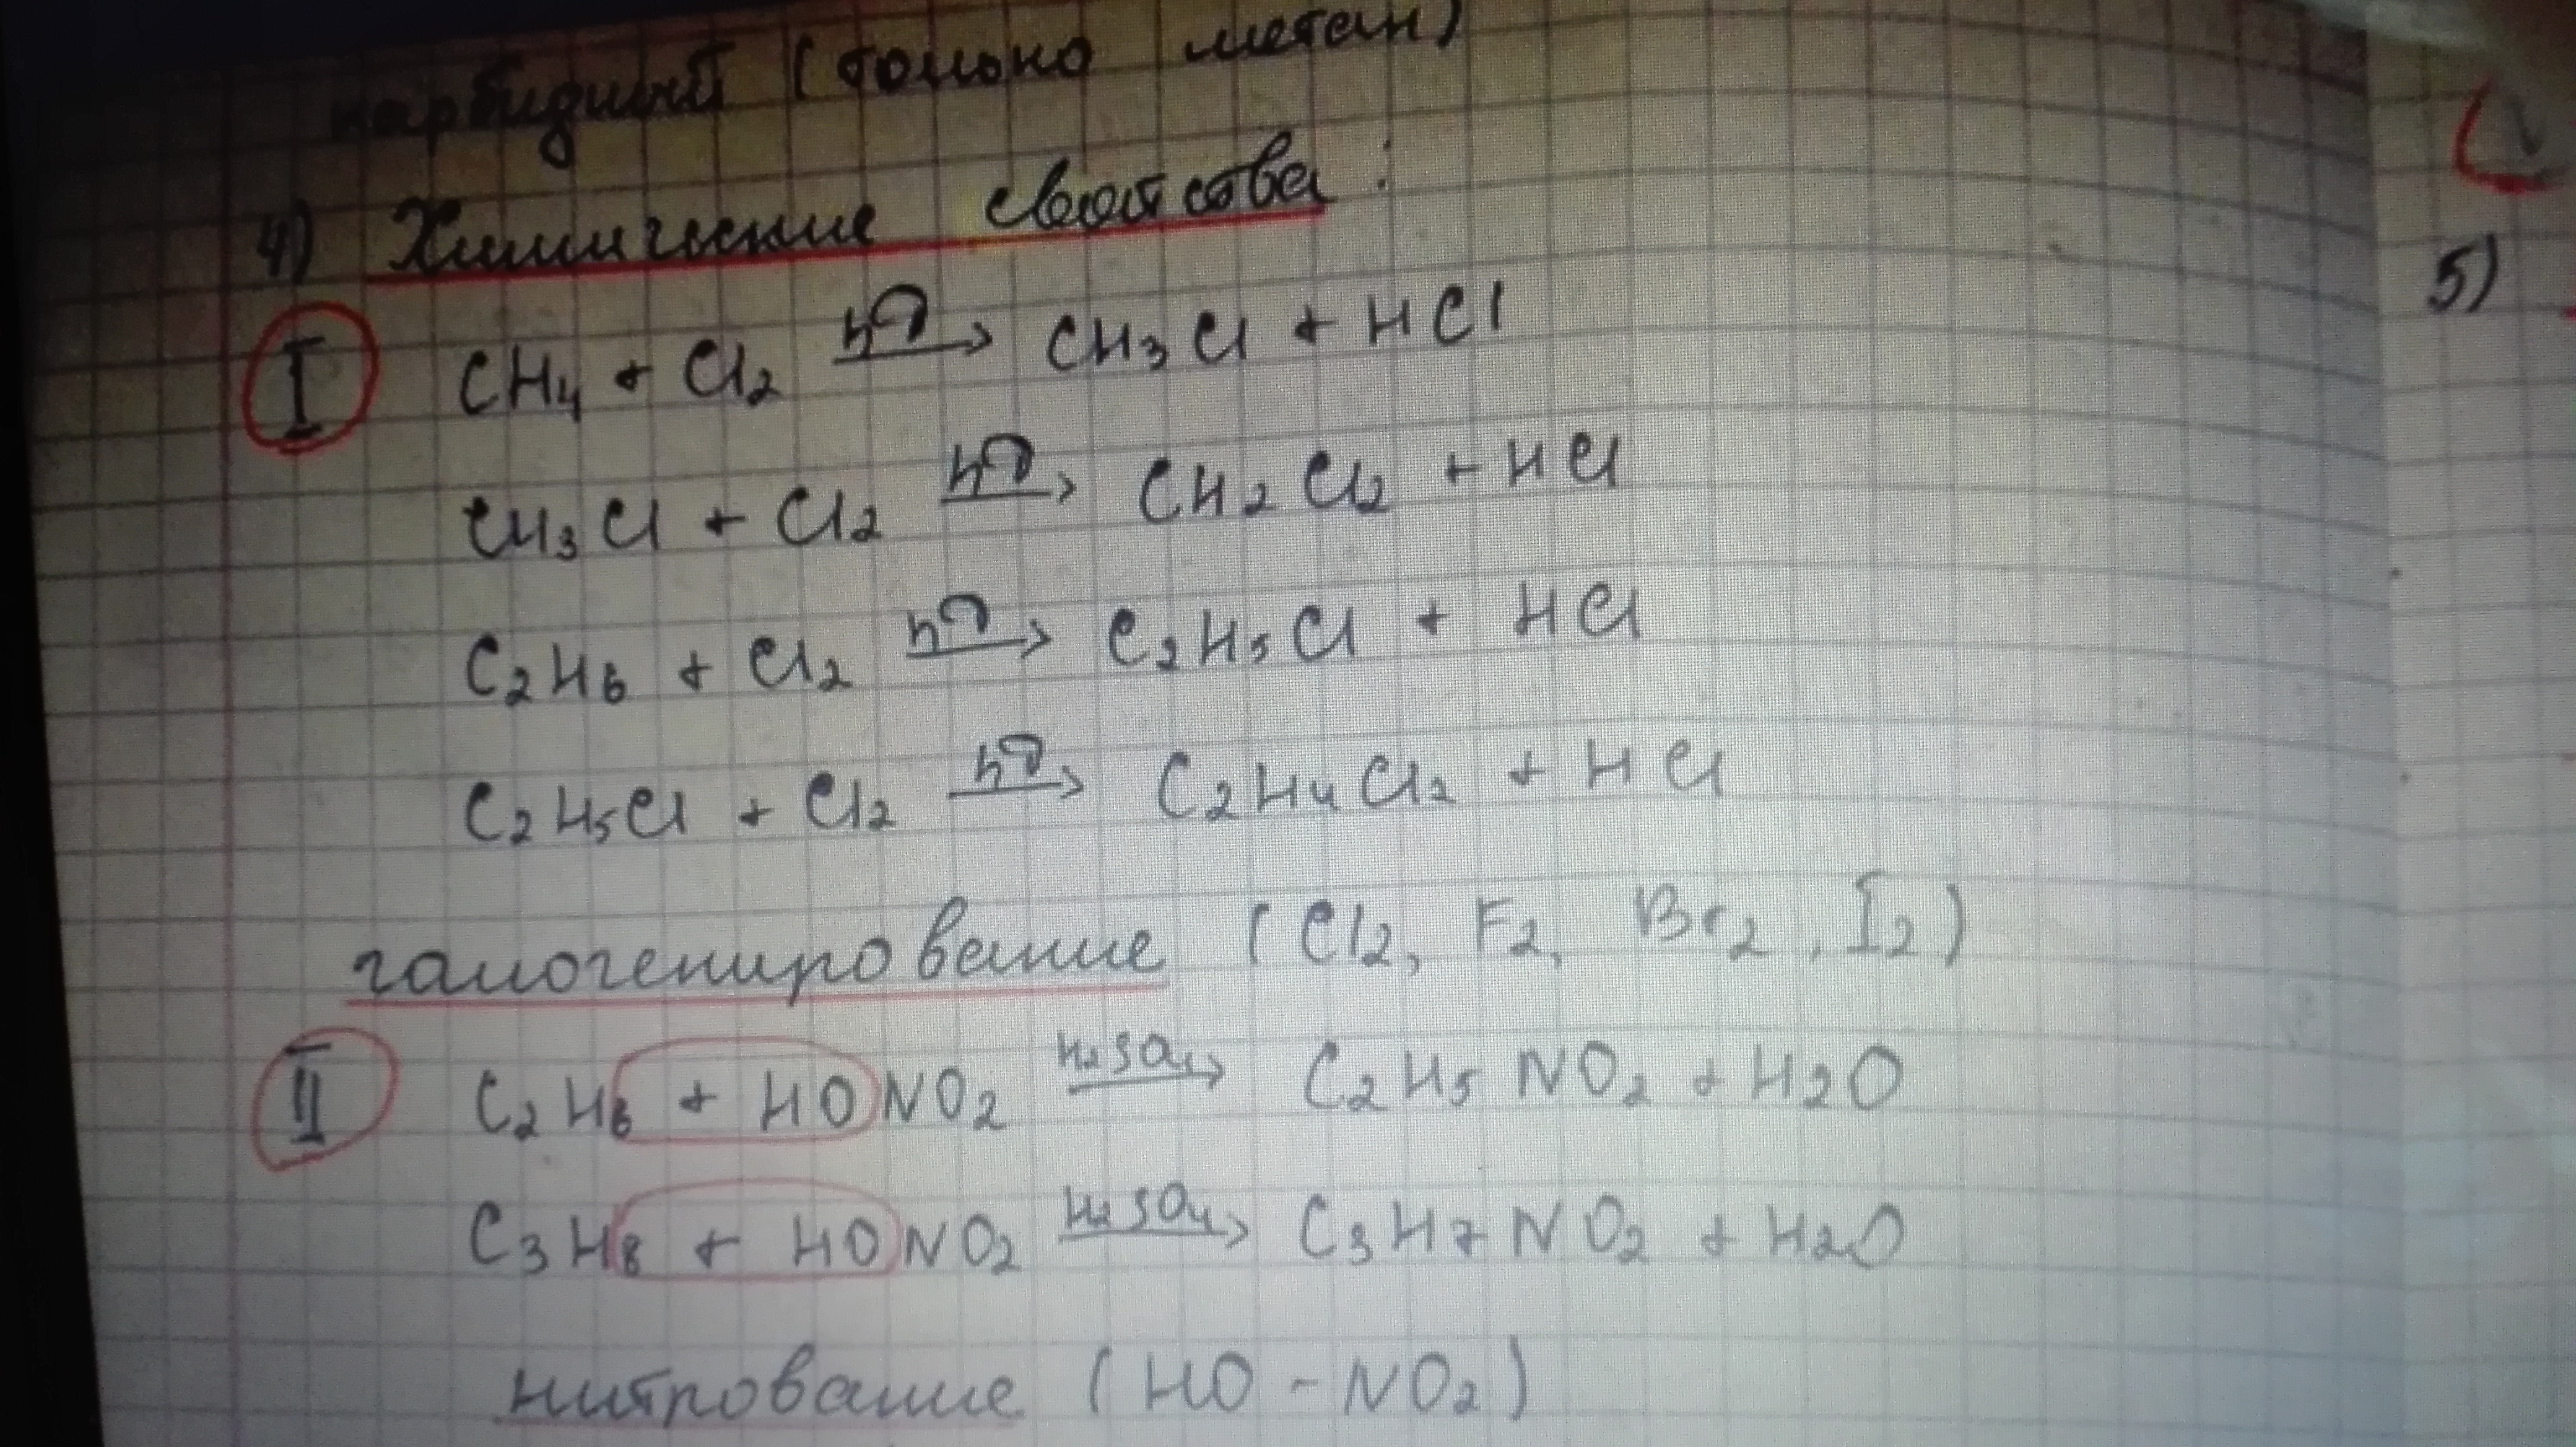 карбидный (только метан)
4) Химические свойства:
I CH₄ + Cl₂ hν→ CH₃Cl + HCl
CH₃Cl + Cl₂ hν→ CH₂Cl₂ + HCl
C₂H₆ + Cl₂ hν→ C₂H₅Cl + HCl
C₂H₅Cl + Cl₂ hν→ C₂H₄Cl₂ + HCl
галогенирование (Cl₂, F₂, Br₂, I₂)
II C₂H₆ + HONO₂ H₂SO₄→ C₂H₅NO₂ + H₂O
C₃H₈ + HONO₂ H₂SO₄→ C₃H₇NO₂ + H₂O
нитрование (HO - NO₂)
5)